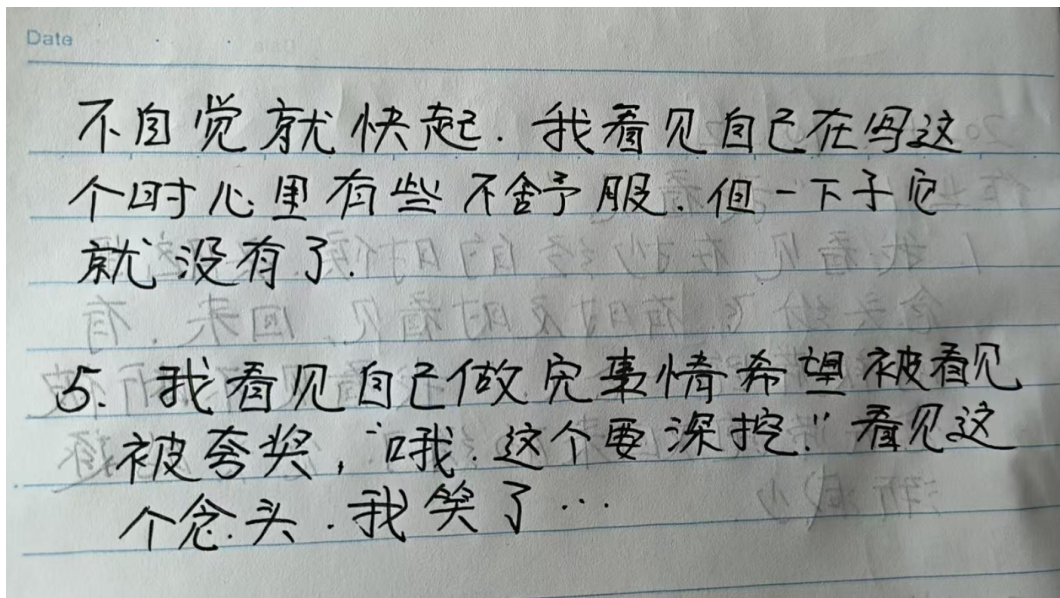 Date
不自觉就快起.我看见自己在写这
个时心里有些不舒服.但一下子它
就没有了.
5.我看见自己做完事情希望被看见
被夸奖,“哦.这个要深挖.”看见这
个念头.我笑了…